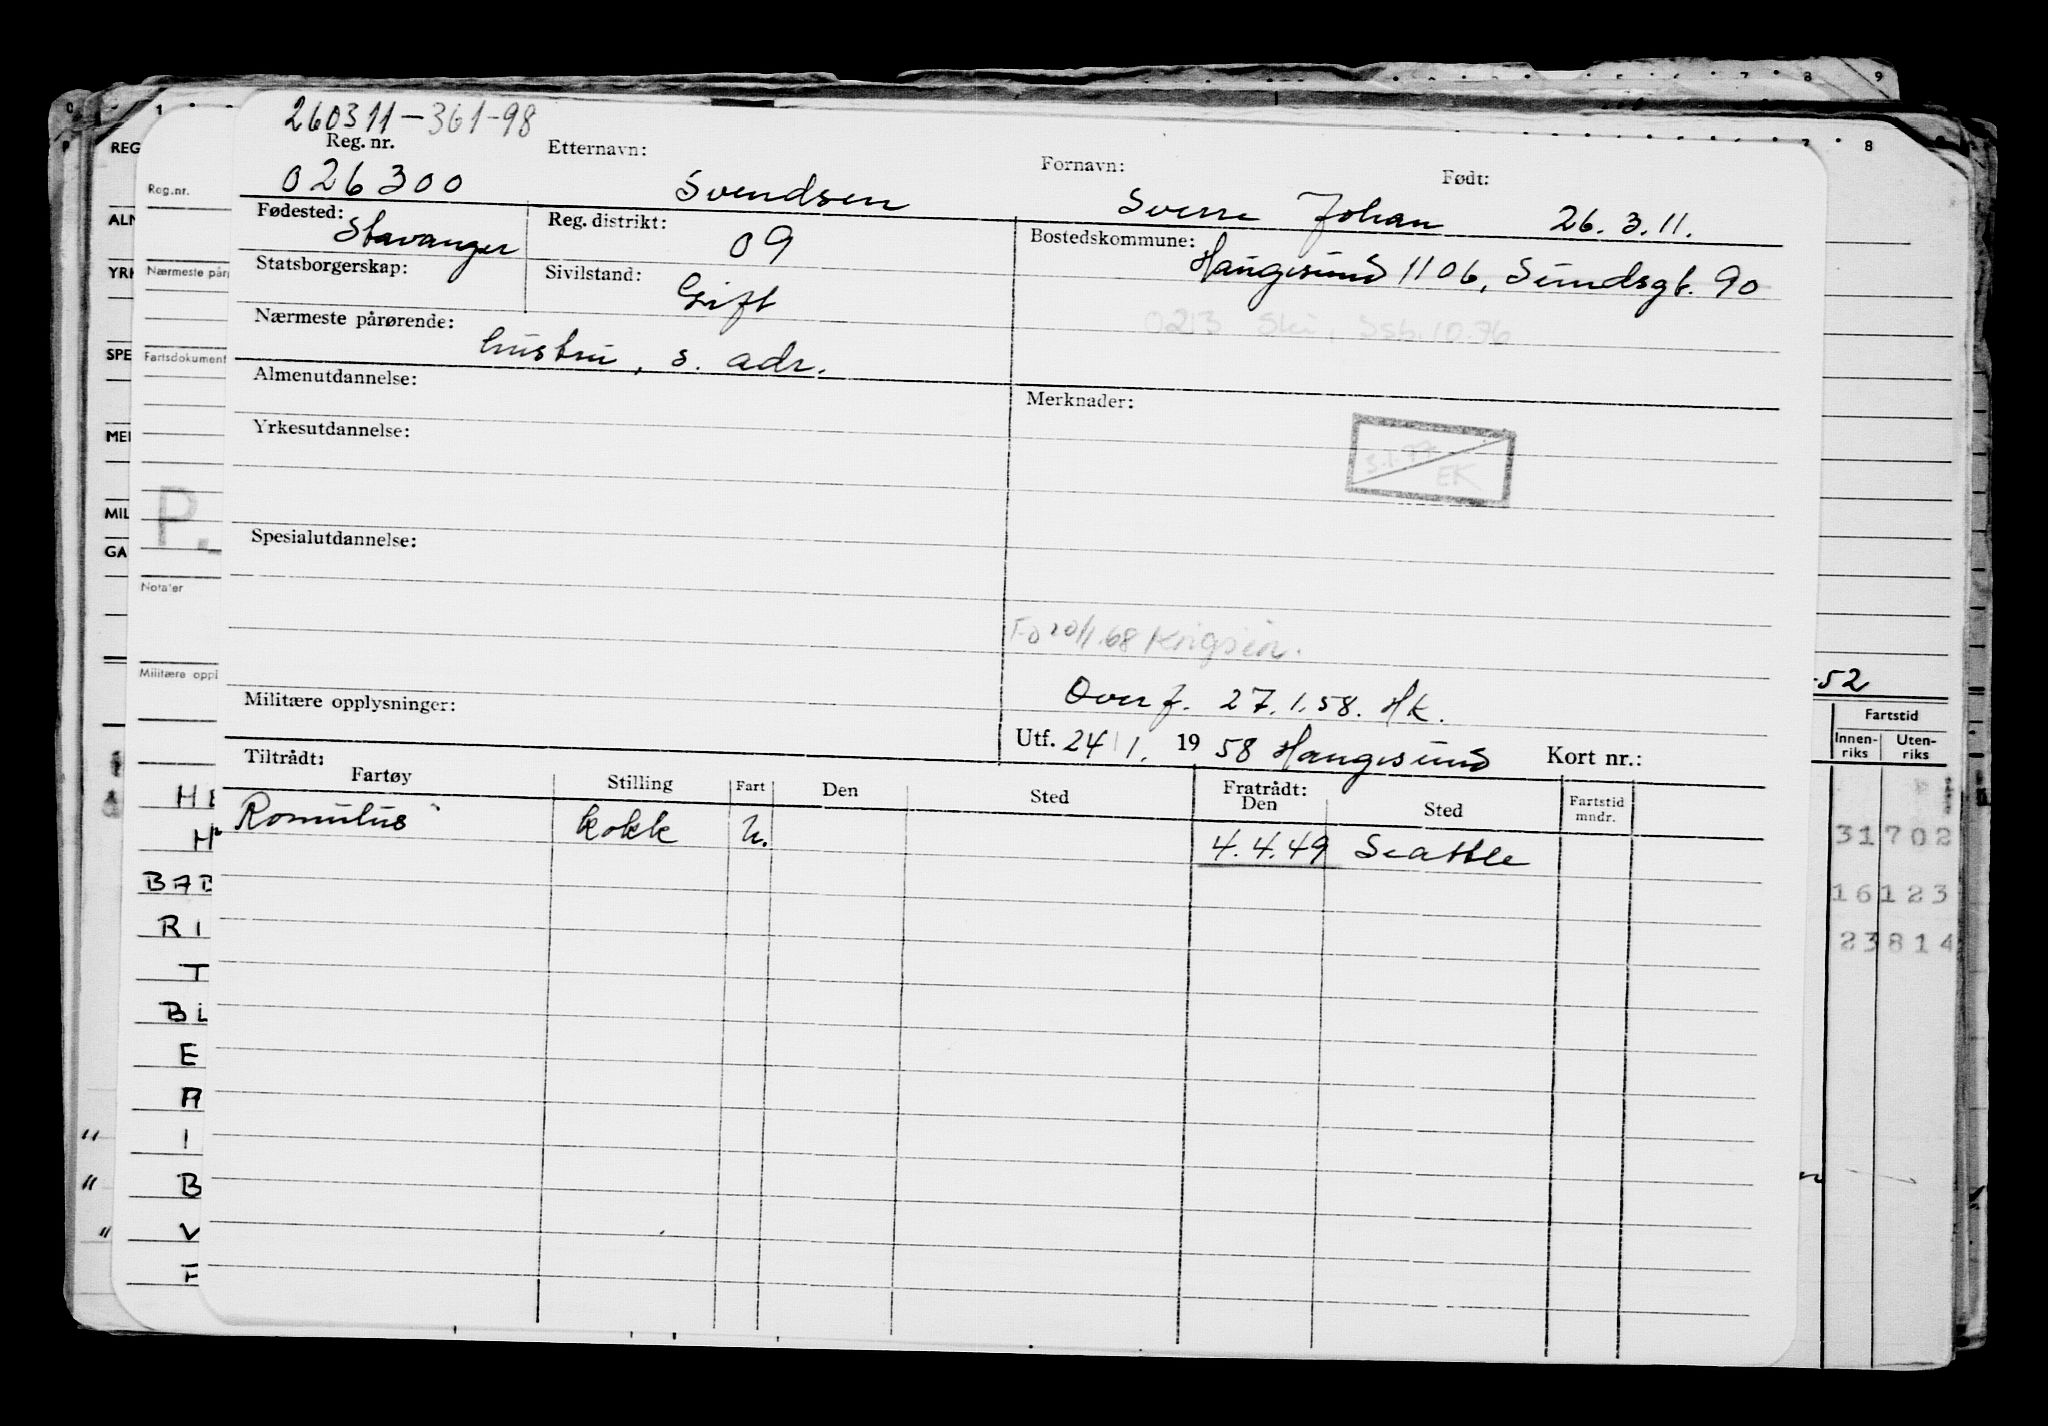 260311-361-98
Reg. nr. Etternavn: Fornavn: Født:
026300 Svendsen Sverre Johan 26.3.11.
Fødested: Stavanger Reg. distrikt: 09 Bostedskommune: Haugesund 1106, Sundsgt. 90
Statsborgerskap: Sivilstand: Gift
0213 Ski, Ssb. 10.76
Nærmeste pårørende: hustru, s. adr.
Almenutdannelse: Merknader:
Yrkesutdannelse:
EK
Spesialutdannelse:
20/1.68
Overf. 27.1.58. Hk.
Militære opplysninger: Utf. 24/1. 1958 Haugesund Kort nr.:
Tiltrådt: Fratrådt:
Fartøy Stilling Fart Den Sted Den Sted Fartstid mndr.
Romulus kokk U. 4.4.49 Seattle
REG
Reg.nr.
ALN
YRK
Nærmeste pår
SPE
Fartsdokument
MEI
MIL
P.
GA
Notater
Militære oppl
H
BAB
RI
T
BL
E
A
I
B
V
F
0 1 7 8 9
7 8
-52
Fartstid
Innen-riks Uten-riks
31702
16123
23814